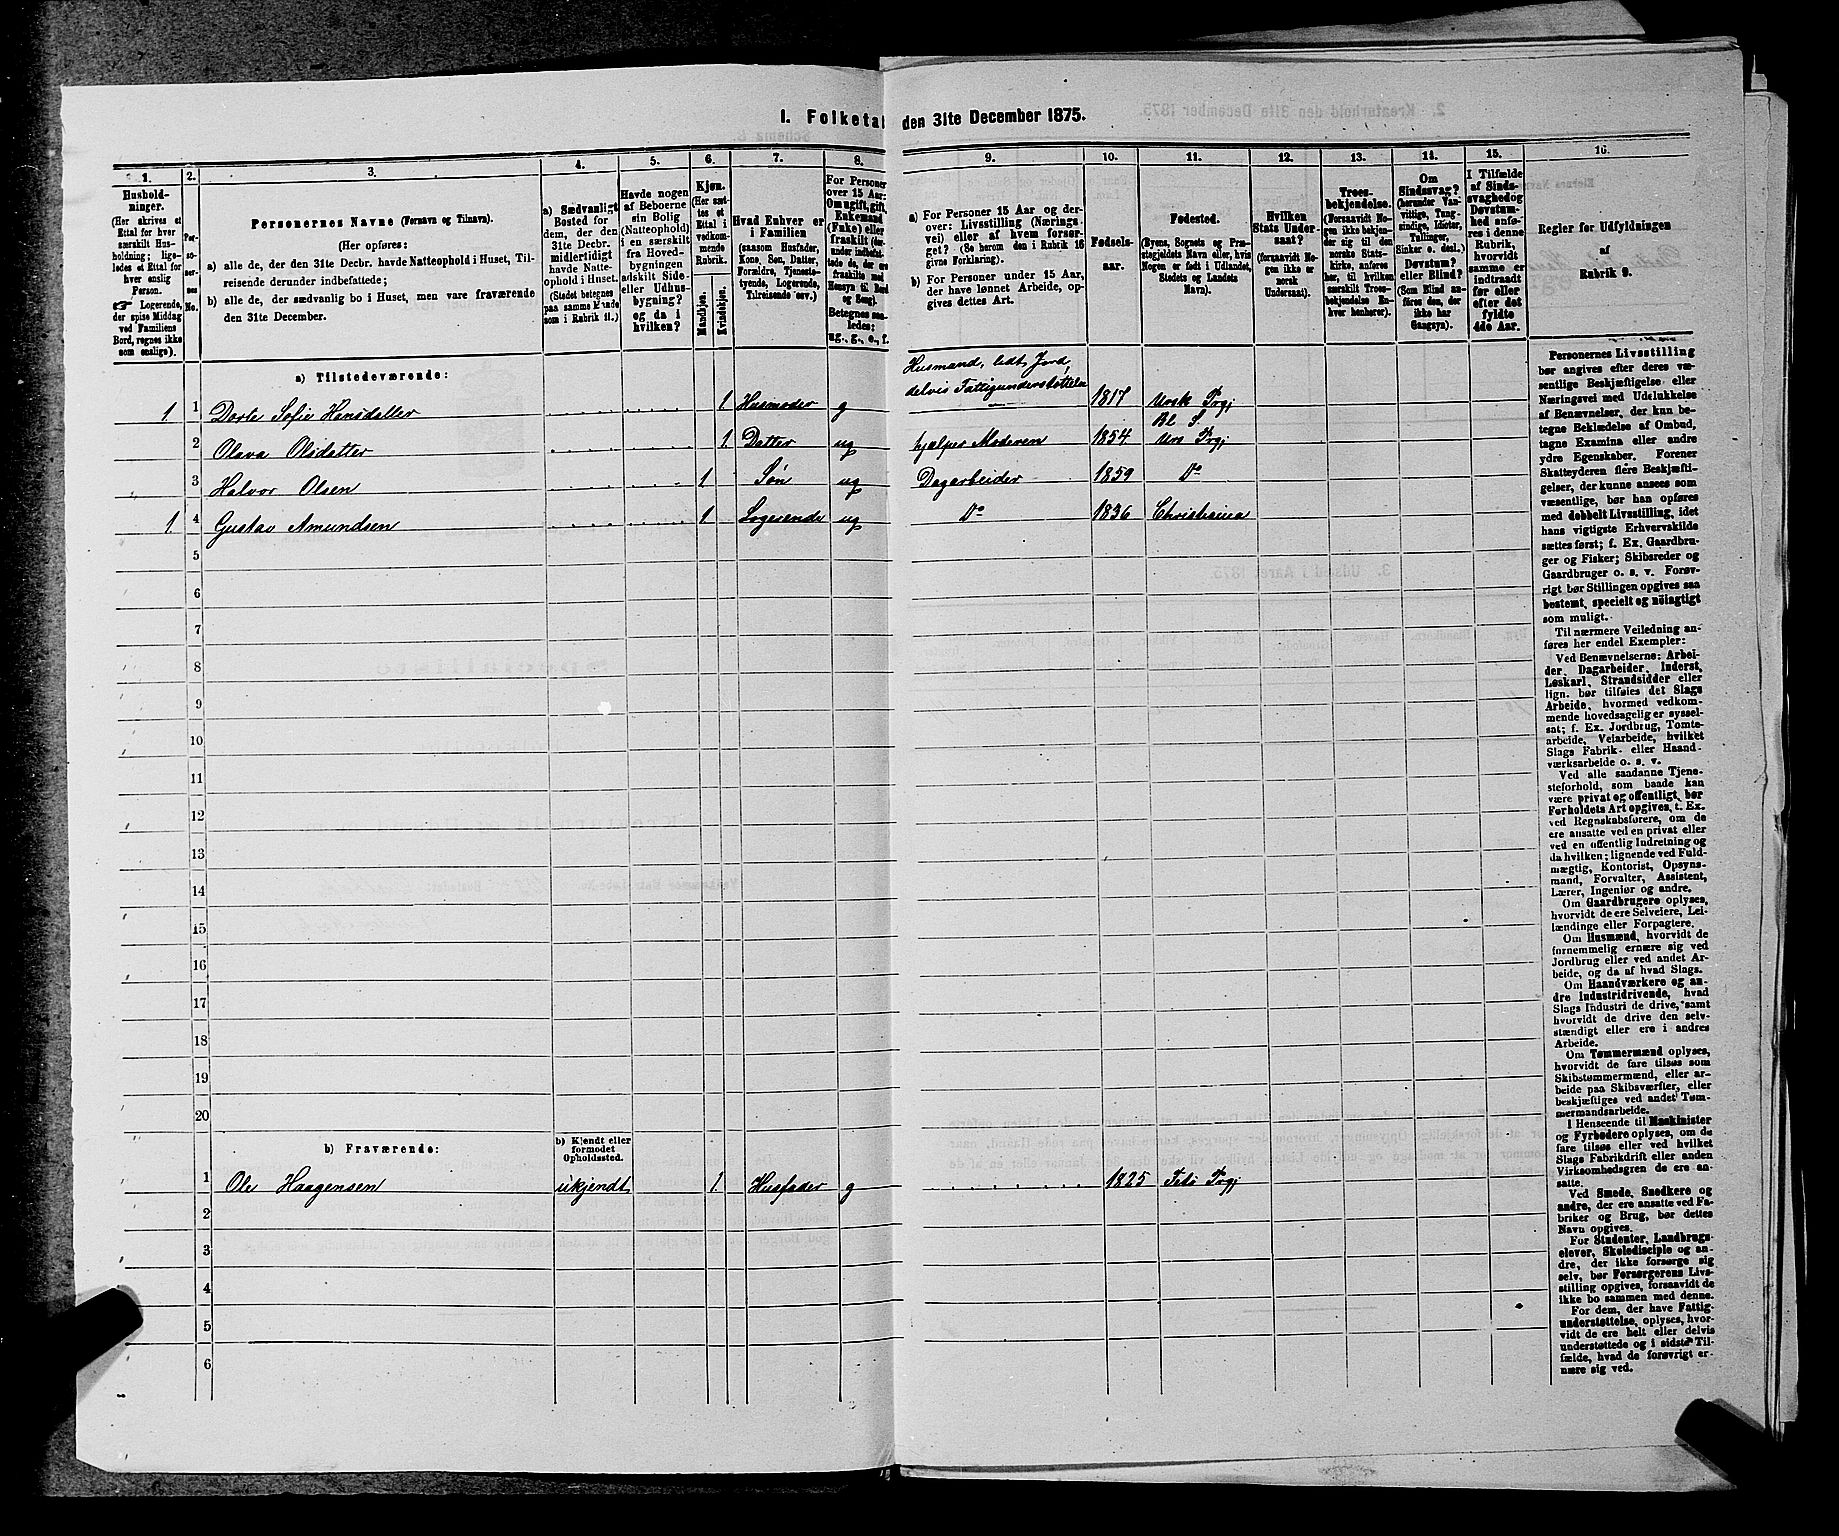 I. Folketal den 31te December 1875.
1. 2. 3. 4. 5. 6. 7. 8. 9. 10. 11. 12. 13. 14. 15. 16.
Hushold-
ninger.
(Her skrives et
Ettal for hver
særskilt Hus-
holdning; lige-
ledes et Ettal for
hver enslig
Person.
☞ Logerende,
der spise Middag
ved Familiens
Bord, regnes ikke
som enslige).
Per-
so-
ner-
nes
No.
Personernes Navne (Fornavn og Tilnavn).
(Her opføres:
a) alle de, der den 31te Decbr. havde Natteophold i Huset, Til-
reisende derunder indbefattede;
b) alle de, der sædvanlig bo i Huset, men vare fraværende
den 31te December.
a) Sædvanligt
Bosted for
dem, der den
31te Decbr.
midlertidigt
havde Natte-
ophold i Huset.
(Stedet betegnes
paa samme Maade
som i Rubrik 11.)
Havde nogen
af Beboerne
sin Bolig
(Natteophold)
i en særskilt
fra Hoved-
bygningen
adskilt Side-
eller Udhus-
bygning?
og da i
hvilken?
Kjøn.
(Her sæt-
tes et
Ettal i
vedkom-
mende
Rubrik.
Mandkjøn.
Kvindekjøn.
Hvad Enhver er
i Familien
(saasom Husfader,
Kone, Søn, Datter,
Forældre, Tjeneste-
tyende, Logerende,
Tilreisende osv.)
For Personer
over 15 Aar:
Om ugift, gift,
Enkemand
(Enke) eller
fraskilt (der-
under indbefat-
tede de, der ere
fraskilte med
Hensyn til Bord
og Seng).
Betegnes saa-
ledes:
ug., g., e., f.
a) For Personer 15 Aar og der-
over: Livsstilling (Nærings-
vei) eller af hvem forsør-
get? (Se herom den i Rubrik 16
givne Forklaring).
b) For Personer under 15 Aar,
der have lønnet Arbeide, op-
gives dettes Art.
Fødsels-
aar.
Fødested.
(Byens, Sognets og Præ-
stegjeldets Navn eller, hvis
Nogen er født i Udlandet,
Stedets og Landets
Navn).
Hvilken
Stats Under-
saat?
(forsaavidt No-
gen ikke er
norsk
Undersaat).
Troes-
bekjendelse.
(Forsaavidt No-
gen ikke bekjen-
der sig til den
norske Stats-
kirke, anføres
her, til hvilken
særskilt Troes-
bekjendelse En-
hver henhører).
Om
Sindssvag?
(herunder Van-
vittige, Tung-
sindige, Idioter,
Tullinger,
Sinker o. desl.)
Døvstum?
eller Blind?
(Som Blind an-
føres den, der
ikke har
Gangsyn).
I Tilfælde
af Sinds-
svaghed og
Døvstum-
hed anfø-
res i denne
Rubrik,
hvorvidt
samme er
indtraadt
før eller
efter det
fyldte
4de Aar.
Regler for Udfyldningen
af
Rubrik 9.
a) Tilstedeværende:
Husmand, ledt Jord,
delvis Fattigunderstøttelse
1. 1 Dorte Sofie Hansdatter 1. Husmoder g 1817 Ursk Prgj
Bl S.
2 Olava Olsdatter 1. Datter ug hjælper Moderen 1854 Urs Prgj
3 Halvor Olsen 1 Søn ug Dagarbeider 1859 Do
1. 4 Gustav Amundsen 1. Logerende ug Do 1836 Christiania
5
6
7
8
9
10
11
12
13
14
15
16
17
18
19
20
b) Fraværende:
b) Kjendt eller
formodet
Opholdssted.
1 Ole Haagensen ukjendt 1. Husfader g 1825 Fets Prgj
2
3
4
5
6
Personernes Livsstilling
bør angives efter deres væ-
sentlige Beskjæftigelse eller
Næringsvei med Udelukkelse
af Benævnelser, der kun be-
tegne Beklædelse af Ombud,
tagne Examina eller andre
ydre Egenskaber. Forener
Skatteyderen flere Beskjæfti-
gelser, der kunne ansees som
væsentlige, bør han opføres
med dobbelt Livsstilling, idet
hans vigtigste Erhvervskilde
sættes først; f. Ex. Gaardbru-
ger og Fisker; Skibsreder og
Gaardbruger o. s. v. Forøv-
rigt bør Stillingen opgives saa
bestemt, specielt og nøiagtigt
som muligt.
Til nærmere Veiledning an-
føres her endel Exempler:
Ved Benævnelserne: Arbei-
der, Dagarbeider, Inderst,
Løskarl, Strandsidder eller
lign. bør tilføies det Slags
Arbeide, hvormed vedkom-
mende hovedsagelig er syssel-
sat; f. Ex. Jordbrug, Tomte-
arbeide, Veiarbeide, hvilket
Slags Fabrik- eller Haand-
værksarbeide o. s. v.
Ved alle saadanne Tjene-
steforhold, som baade kan
være privat og offentligt, bør
Forholdets Art opgives, t. Ex.
ved Regnskabsførere, om de
ere ansatte ved en privat eller
ved en offentlig Indretning og
da hvilken; lignende ved Fuld-
mægtig, Kontorist, Opsyns-
mand, Forvalter, Assistent,
Lærer, Ingeniør og andre.
Om Gaardbrugere oplyses,
hvorvidt de ere Selveiere, Lei-
lændinge eller Forpagtere.
Om Husmænd, hvorvidt de
fornemmelig ernære sig ved
Jordbrug eller ved andet Ar-
beide, og da af hvad Slags.
Om Haandværkere og an-
dre Industridrivende, hvad
Slags Industri de drive, samt
hvorvidt de drive den selv-
stændigt eller ere i andres
Arbeide.
Om Tømmermænd oplyses,
hvorvidt de fare tilsøs som
Skibstømmermænd, eller ar-
beide paa Skibsværfter, eller
beskjæftiges ved andet Tøm-
mermandsarbeide.
I Henseende til Maskinister
og Fyrbødere oplyses, om de
fare tilsøs eller ved hvilket
Slags Fabrikdrift eller anden
Virksomhedsgren de ere an-
satte.
Ved Smede, Snedkere og
andre, der ere ansatte ved Fa-
briker og Brug, bør dettes
Navn opgives.
For Studenter, Landbrugs-
elever, Skoledisciple og an-
dre, der ikke forsørge sig
selv, bør Forsørgerens Livs-
stilling opgives, forsaavidt de
ikke bo sammen med denne.
For dem, der have Fattig-
understøttelse, oplyses, hvor-
vidt de ere helt eller delvis
understøttede og i sidste Til-
fælde, hvad de forøvrigt er-
nære sig ved.